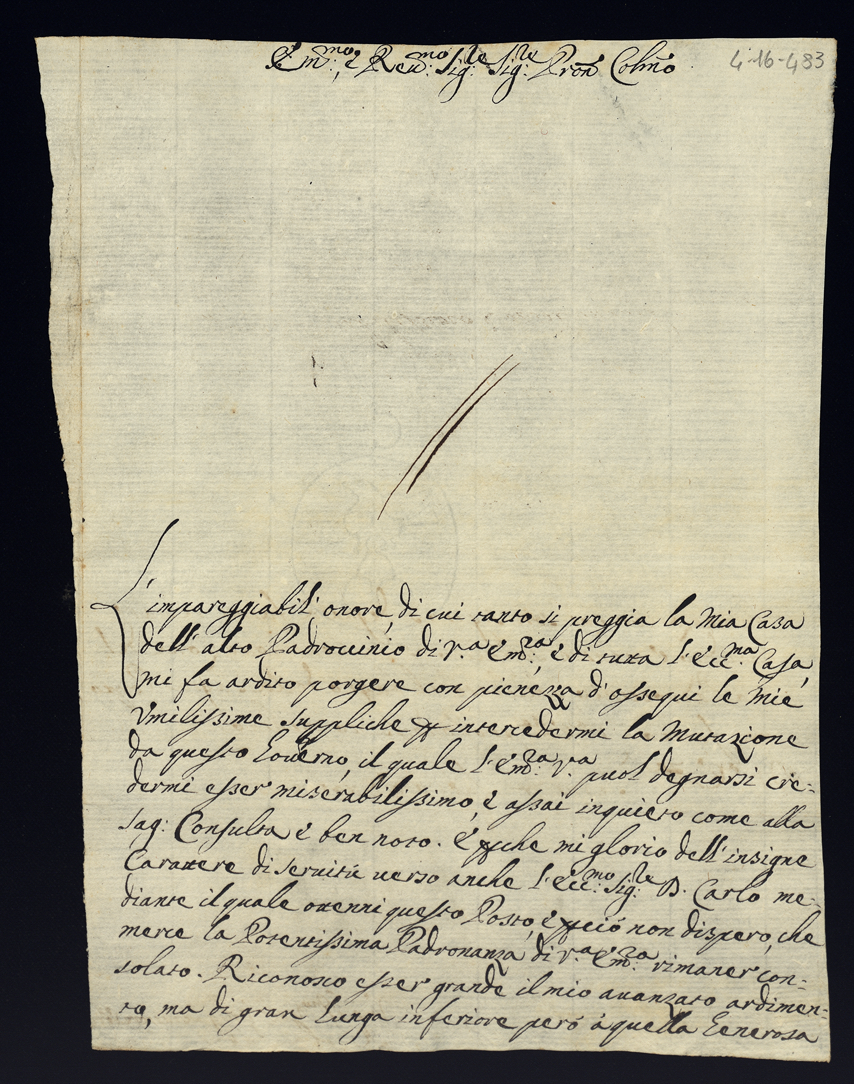 Em:mo, e Reu:mo Sig:re Sig:re Pron Colmo
4-16-483
L'impareggiabil'onore, di cui tanto si preggia la Mia Casa
dell'alto Padrocinio di V.a Em:za, e di tutta l'Ecc:ma Casa,
mi fa ardito porgere con pienezza d'ossequi le mie
Vmilissime suppliche p intercedermi la Mutazione
da questo Gouerno, il quale l'Em:za V.a puol degnarsi cre=
dermi esser miserabilissimo, e assai inquieto come alla
Sag: Consulta è ben noto. E pche mi glorio dell'insigne
Carattere di seruitù uerso anche l'Ecc:mo Sig:re D. Carlo me=
diante il quale ottenni questo Posto, e pciò non dispero, che
merce la Potentissima Padronanza di V.a Em:za rimaner con=
solato. Riconosco esser grande il mio auanzato ardimen=
to, ma di gran lunga inferiore però à quella Generosa